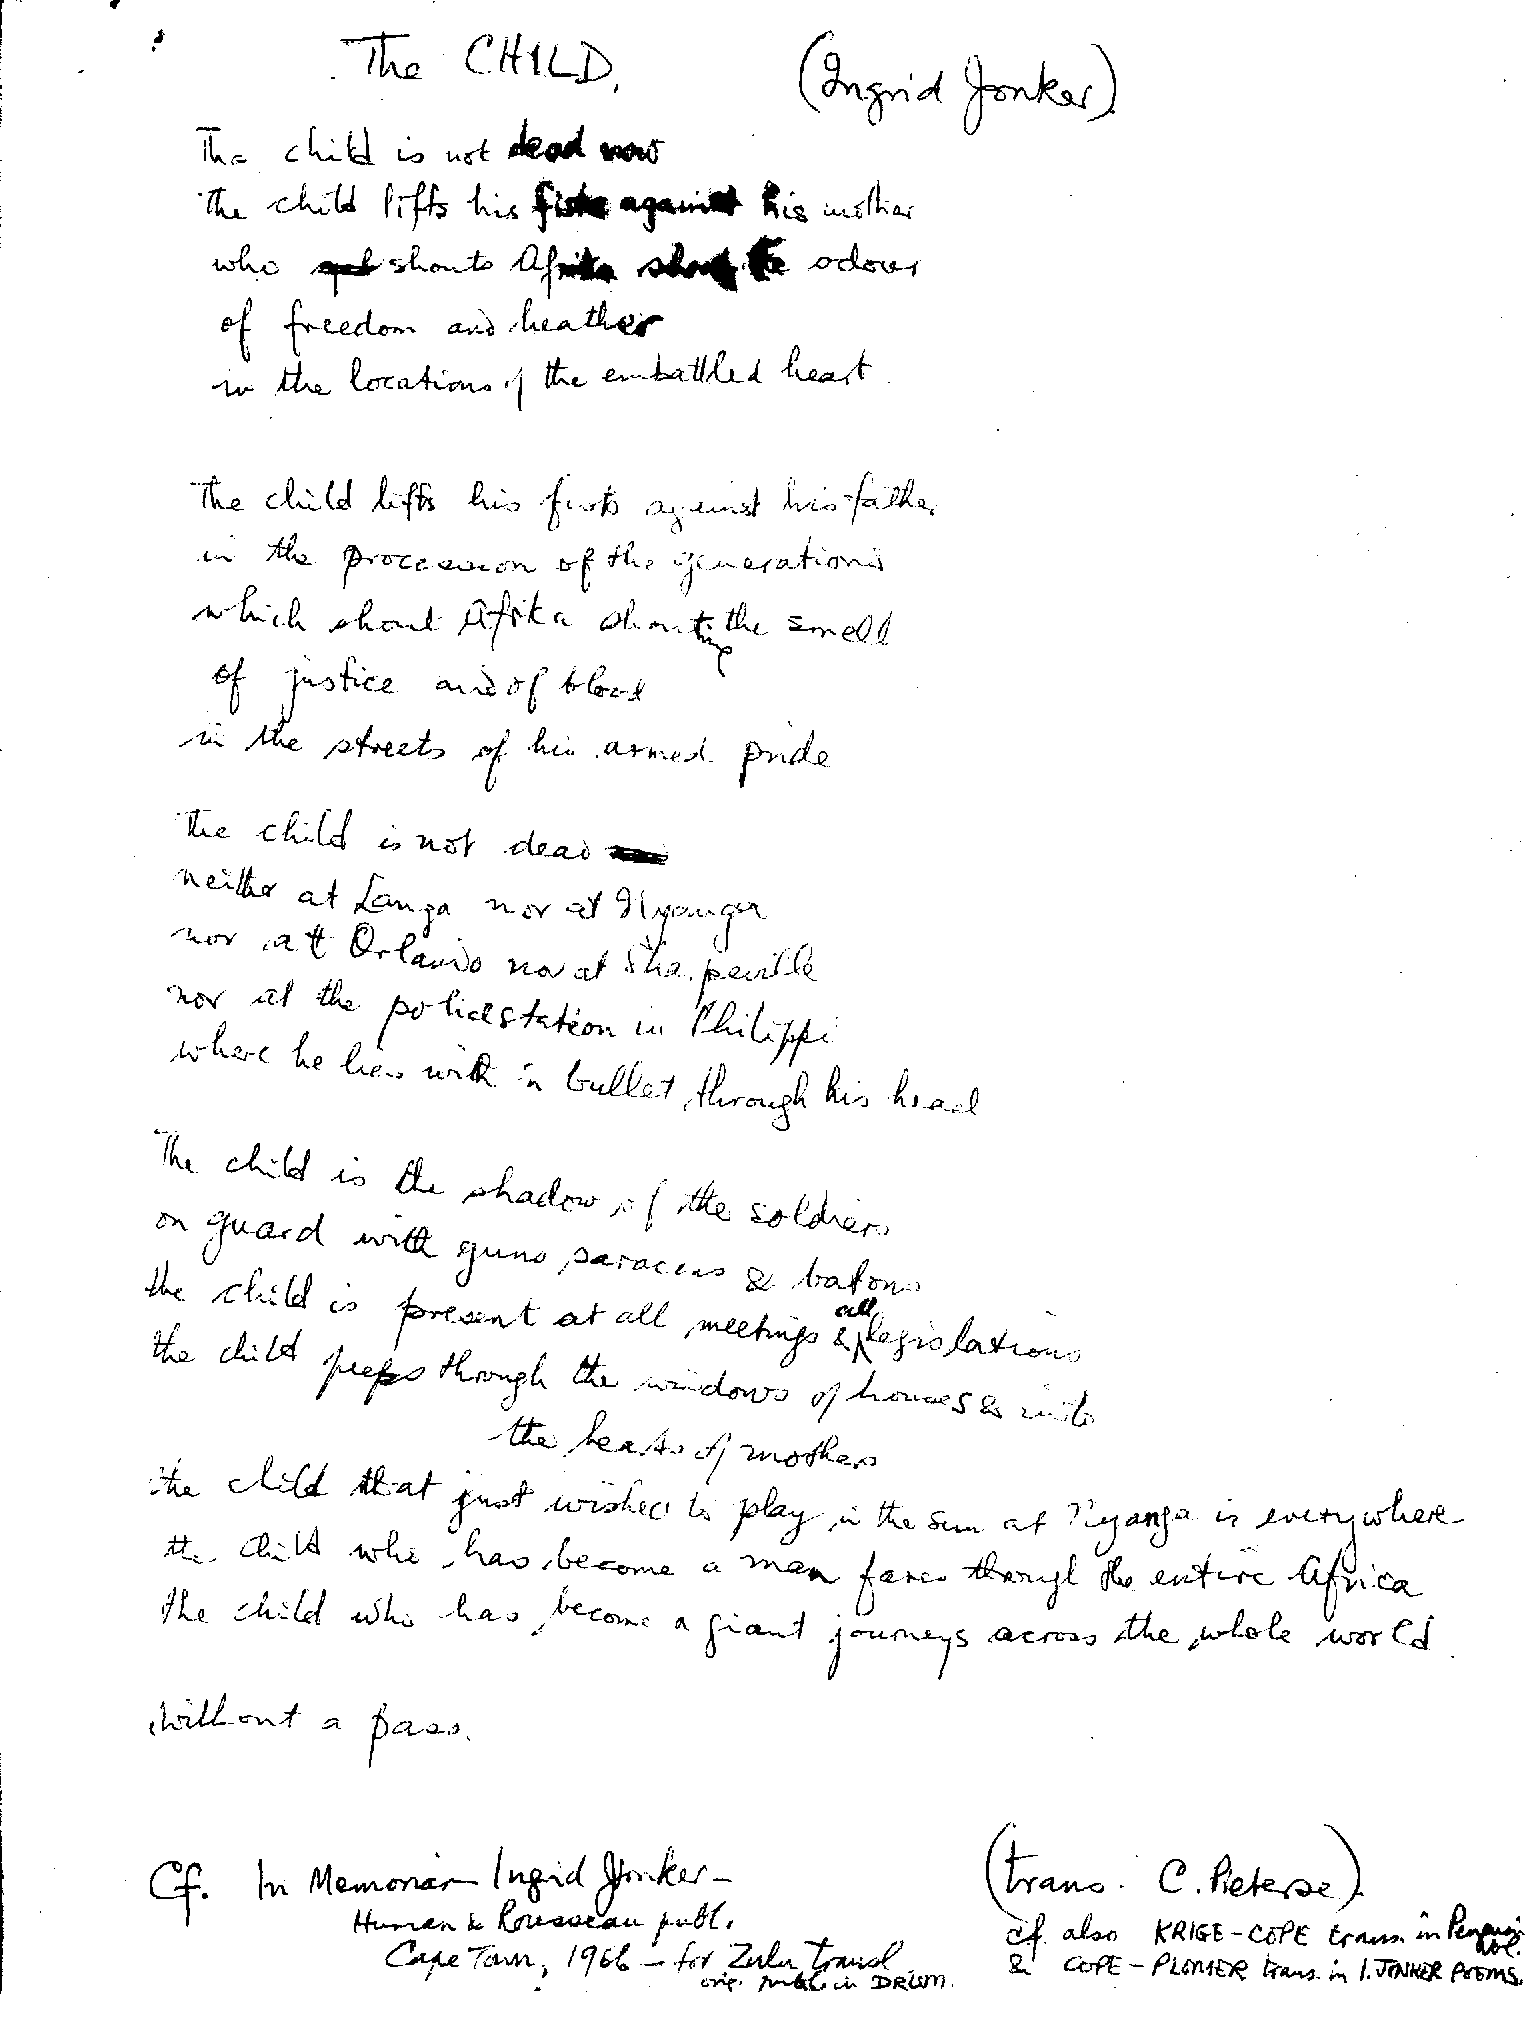 The CHILD. (Ingrid Jonker)
The child is not dead now
the child lifts his fists against his mother
who shouts Afrika shouts the odour
of freedom and heather
in the locations of the embattled heart.
The child lifts his fists against his father
in the procession of the generations
which shout Afrika shouting the smell
of justice and of blood
in the streets of his armed pride
The child is not dead
neither at Langa nor at Nyanga
nor at Orlando nor at Sharpeville
nor at the police station in Philippi
where he lies with a bullet through his head
The child is the shadow of the soldiers
on guard with guns saracens & batons
the child is present at all meetings & all legislations
the child peeps through the windows of houses & into
the hearts of mothers
the child that just wished to play in the sun at Nyanga is everywhere
the child who has become a man fares through the entire Africa
the child who has become a giant journeys across the whole world
without a pass.
(trans. C. Pieterse)
Cf. In Memoriam Ingrid Jonker -
Human & Rousseau publ.
Cape Town, 1966 - for Zulu transl.
orig. publ. in DRUM.
cf. also KRIGE-COPE trans. in Penguin vol.
& COPE-PLOMER trans. in I. JONKER POEMS.